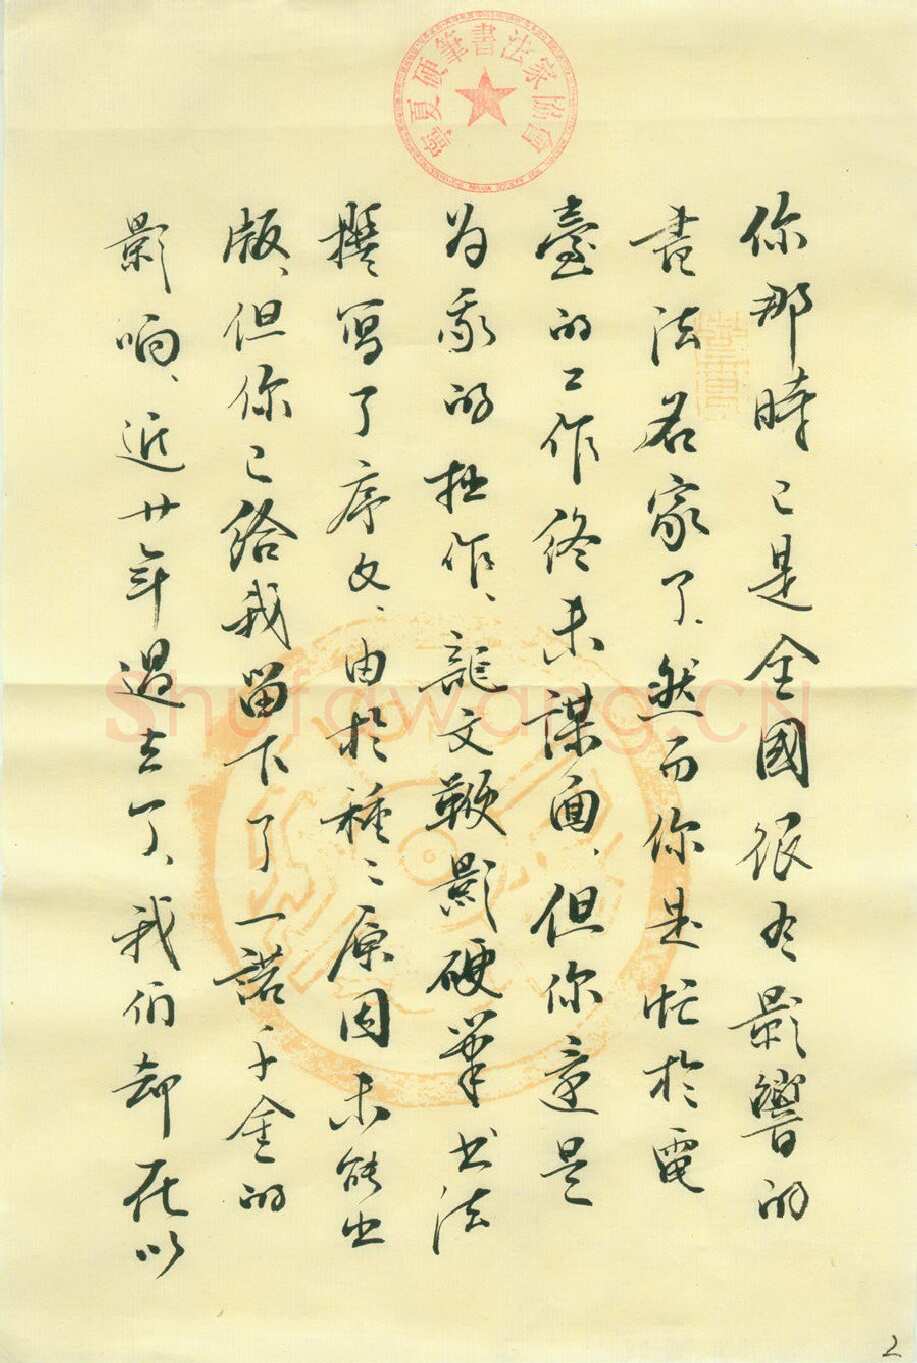 寧夏硬筆書法家協會
你那時已是全國很有影響的
書法名家了、然而你是忙於電
臺的工作終未謀面、但你還是
为我的拙作、龍文鞭影硬筆书法
撰寫了序文、由於種〻原因未能出
版、但你已给我留下了一諾千金的
影响、近廿年過去了、我们却在以
Shufawang.CN
2